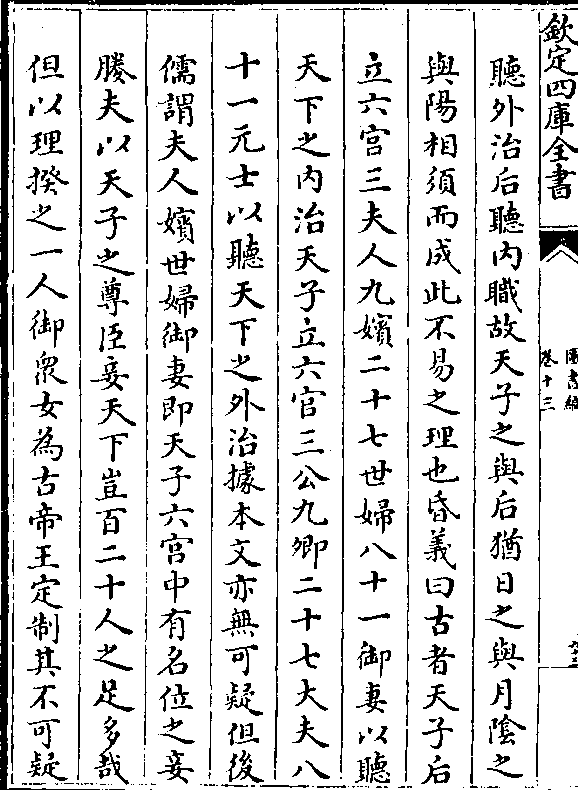 欽定四庫全書
圖書編
卷十三
聽外治后聽内職故天子之與后猶日之與月陰之
與陽相須而成此不易之理也昏義曰古者天子后
立六宫三夫人九嬪二十七世婦八十一御妻以聽
天下之内治天子立六官三公九卿二十七大夫八
十一元士以聽天下之外治據本文亦無可疑但後
儒謂夫人嬪世婦御妻即天子六宫中有名位之妾
媵夫以天子之尊臣妾天下豈百二十人之足多哉
但以理揆之一人御衆女為古帝王定制其不可疑